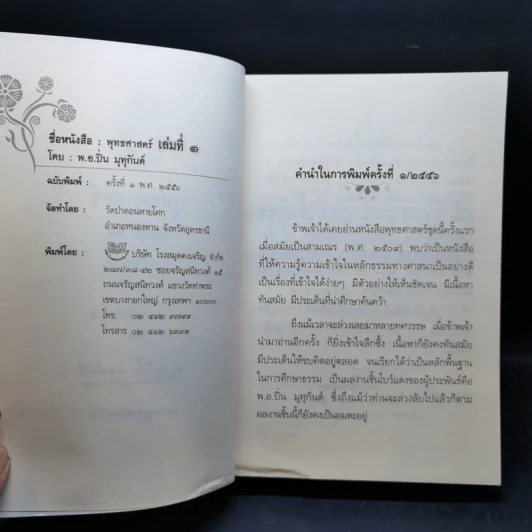 ชื่อหนังสือ : พุทธศาสตร์ เล่มที่ ๑
โดย : พ.อ.ปิ่น มุทุกันต์
ฉบับพิมพ์ : ครั้งที่ ๑ พ.ศ. ๒๕๕๖
จัดทำโดย : วัดป่าดอนหายโศก
อำเภอหนองหาน จังหวัดอุดรธานี
พิมพ์โดย : บริษัท โรงสมุดคงเจริญ จำกัด
๒๘๗/๓๘-๔๒ ซอยจรัญสนิทวงศ์ ๑๕
ถนนจรัญสนิทวงศ์ แขวงวัดท่าพระ
เขตบางกอกใหญ่ กรุงเทพฯ ๑๐๖๐๐
โทร. ๐๒ ๔๑๒ ๓๗๙๙
โทรสาร ๐๒ ๔๑๒ ๖๙๓๙
คำนำในการพิมพ์ครั้งที่ ๑/๒๕๕๖
ข้าพเจ้าได้เคยอ่านหนังสือพุทธศาสตร์ชุดนี้ครั้งแรก
เมื่อสมัยเป็นสามเณร (พ.ศ. ๒๕๐๙) พบว่าเป็นหนังสือ
ที่ให้ความรู้ความเข้าใจในหลักธรรมทางศาสนาเป็นอย่างดี
เป็นเรื่องที่เข้าใจได้ง่ายๆ มีตัวอย่างให้เห็นชัดเจน มีเนื้อหา
ทันสมัย มีประเด็นที่น่าศึกษาค้นคว้า
ถึงแม้เวลาจะล่วงเลยมาหลายทศวรรษ เมื่อข้าพเจ้า
นำมาอ่านอีกครั้ง ก็ยิ่งเข้าใจลึกซึ้ง เนื้อหาก็ยังคงทันสมัย
มีประเด็นให้ขบคิดอยู่ตลอด จนเรียกได้ว่าเป็นหลักพื้นฐาน
ในการศึกษาธรรม เป็นผลงานชิ้นโบว์แดงของผู้ประพันธ์คือ
พ.อ.ปิ่น มุทุกันต์ ซึ่งถึงแม้ว่าท่านจะล่วงลับไปแล้วก็ตาม
ผลงานชิ้นนี้ก็ยังคงเป็นอมตะอยู่